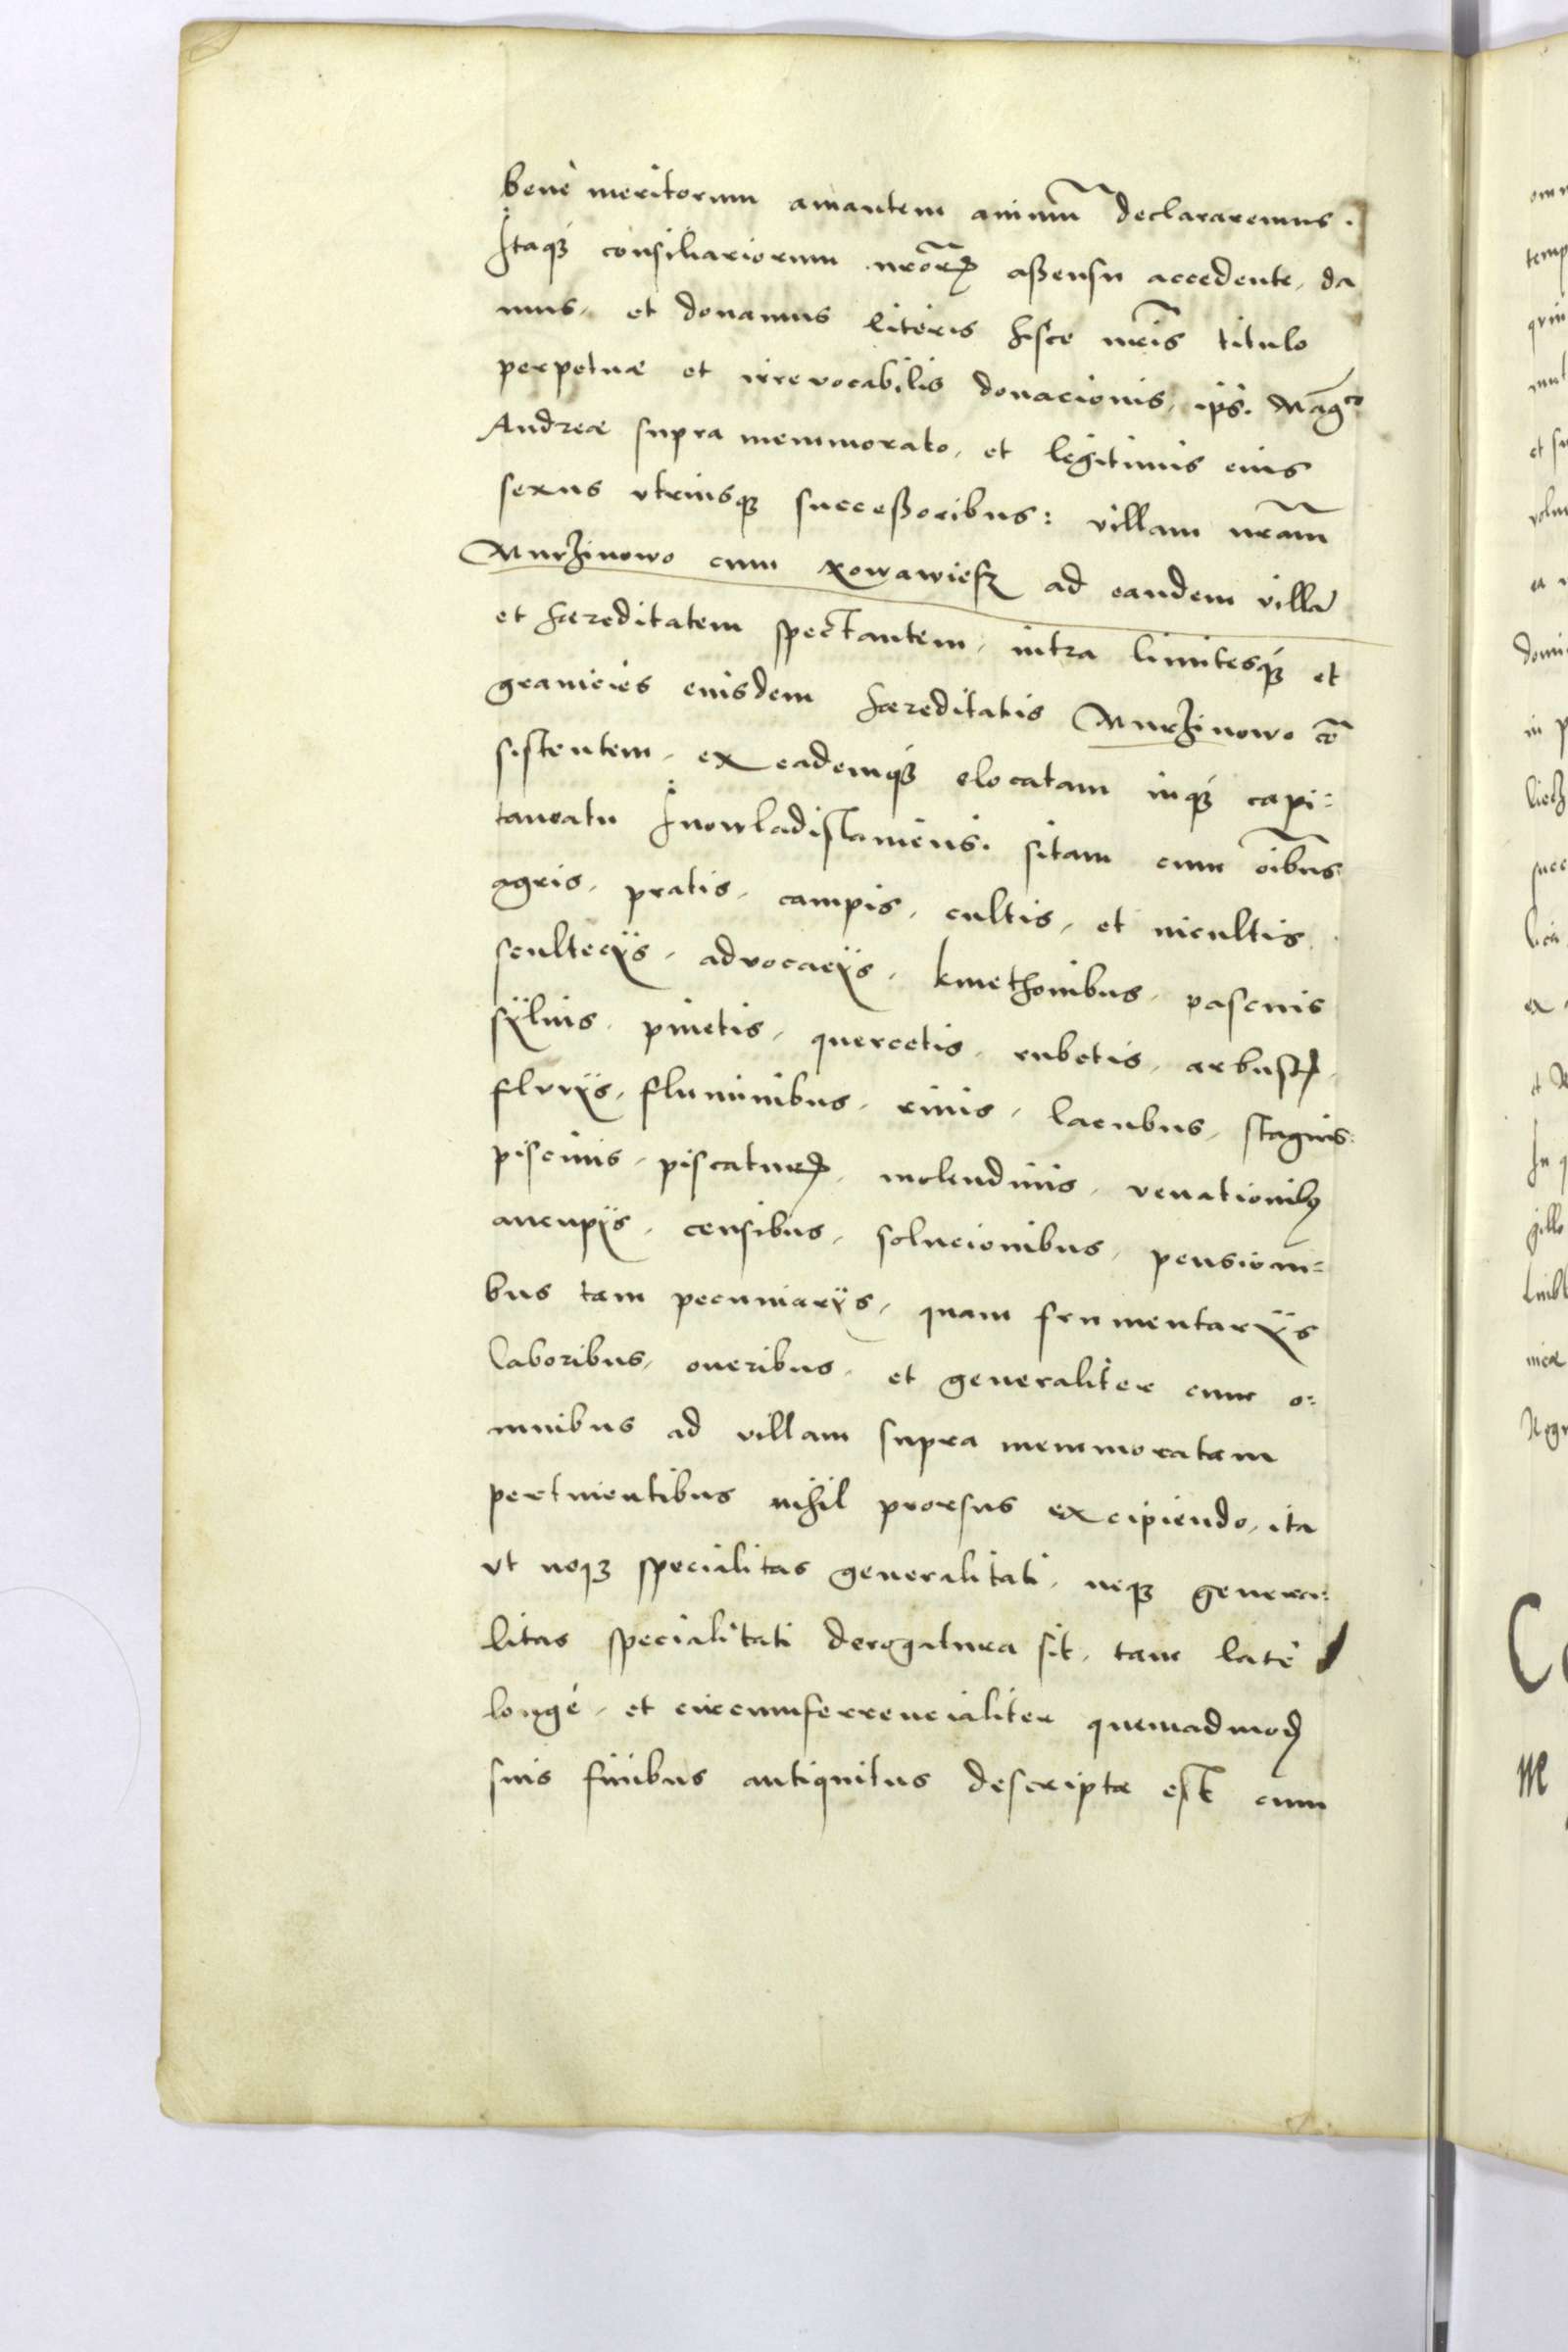 benè meritorum amantem animū declararemus.
Itaq́ꝫ consiliariorum nr̃oꝝ aßensu accedente, da
mus, et donamus literis hisce nr̃is titulo
perpetuæ et irrevocabilis donacionis, ips. Magco
Andreæ supra memmorato, et legitimis eius
sexus vtriusqꝫ succeßoribus: villam nr̃am
Murzinowo cum Nowawiesz ad eandem villā
et hæreditatem spectantem, intra limitesq́ꝫ et
granicies eiusdem hæreditatis Murzinowo cō
sistentem, ex eademq́ꝫ elocatam inq́ꝫ capi:
taneatu Inowladislaniens. sitam cum oībus
agris, pratis, campis, cultis, et incultis
scultecÿs, advocacÿs, kmethonibus, pascuis
sÿluis, pinetis, quercetis, rubetis, arbustꝭ,
fluvÿs, fluminibus, riuis, lacubus, stagnis:
piscinis, piscaturꝭ, molendinis, venationibꝫ
aucupÿs, censibus, solucionibus, pensioni=
bus tam pecuniarÿs, quam frumentarÿs
laboribus, oneribus, et generaliter cum o:
mnibus ad villam supra memmoratam
pertinentibus nihil prorsus excipiendo, ita
vt neqꝫ specialitas generalitati, neqꝫ genera:
litas specialitati derogatura sit, tam latè
longè, et circumferrencialiter quemadmodꝫ
suis finibus antiquitus descripta est cum